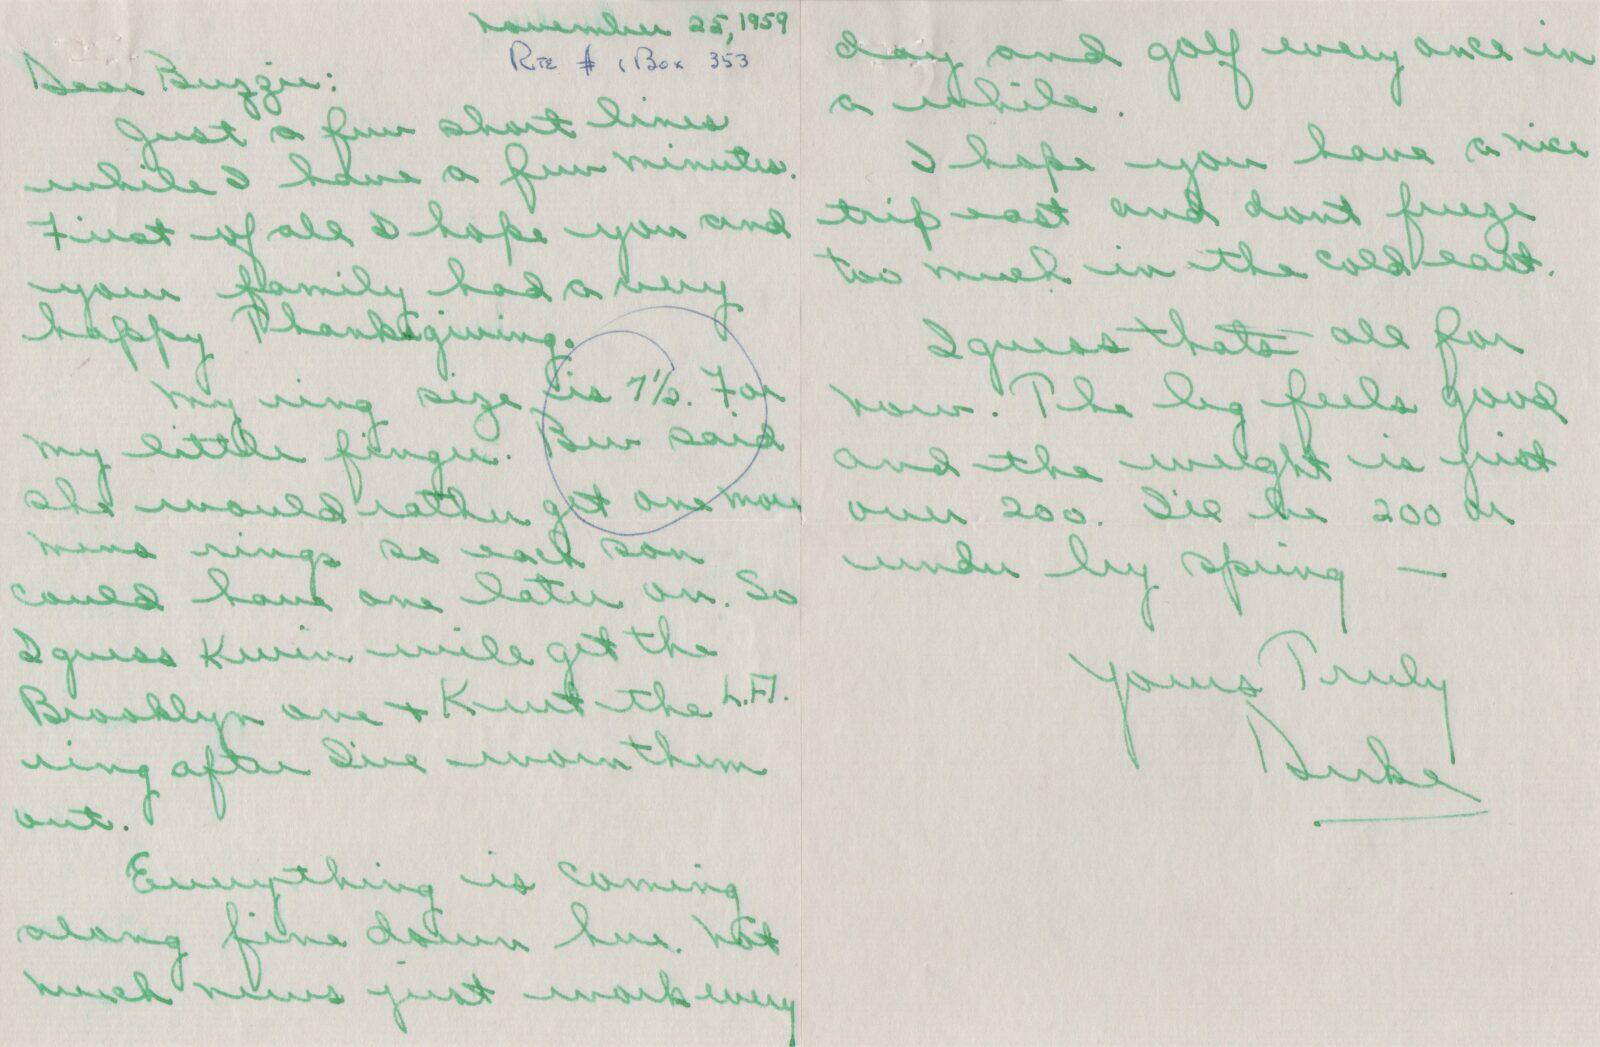 November 25, 1959
Rte # 1 Box 353
Dear Buzzie:
Just a few short lines
while I have a few minutes.
First of all I hope you and
your family had a very
happy Thanksgiving.
My ring size is 7½. For
my little finger. Bev said
she would rather get one more
mens rings so each son
could have one later on. So
I guess Kevin will get the
Brooklyn one + Kurt the L.A.
ring after I've worn them
out.
Everything is coming
along fine down here. Not
much news just work every
day and golf every once in
a while.
I hope you have a nice
trip east and dont freeze
too much in the cold east.
I guess thats all for
now. The leg feels good
and the weight is just
over 200. I'll be 200 or
under by spring —
Yours Truly
Duke